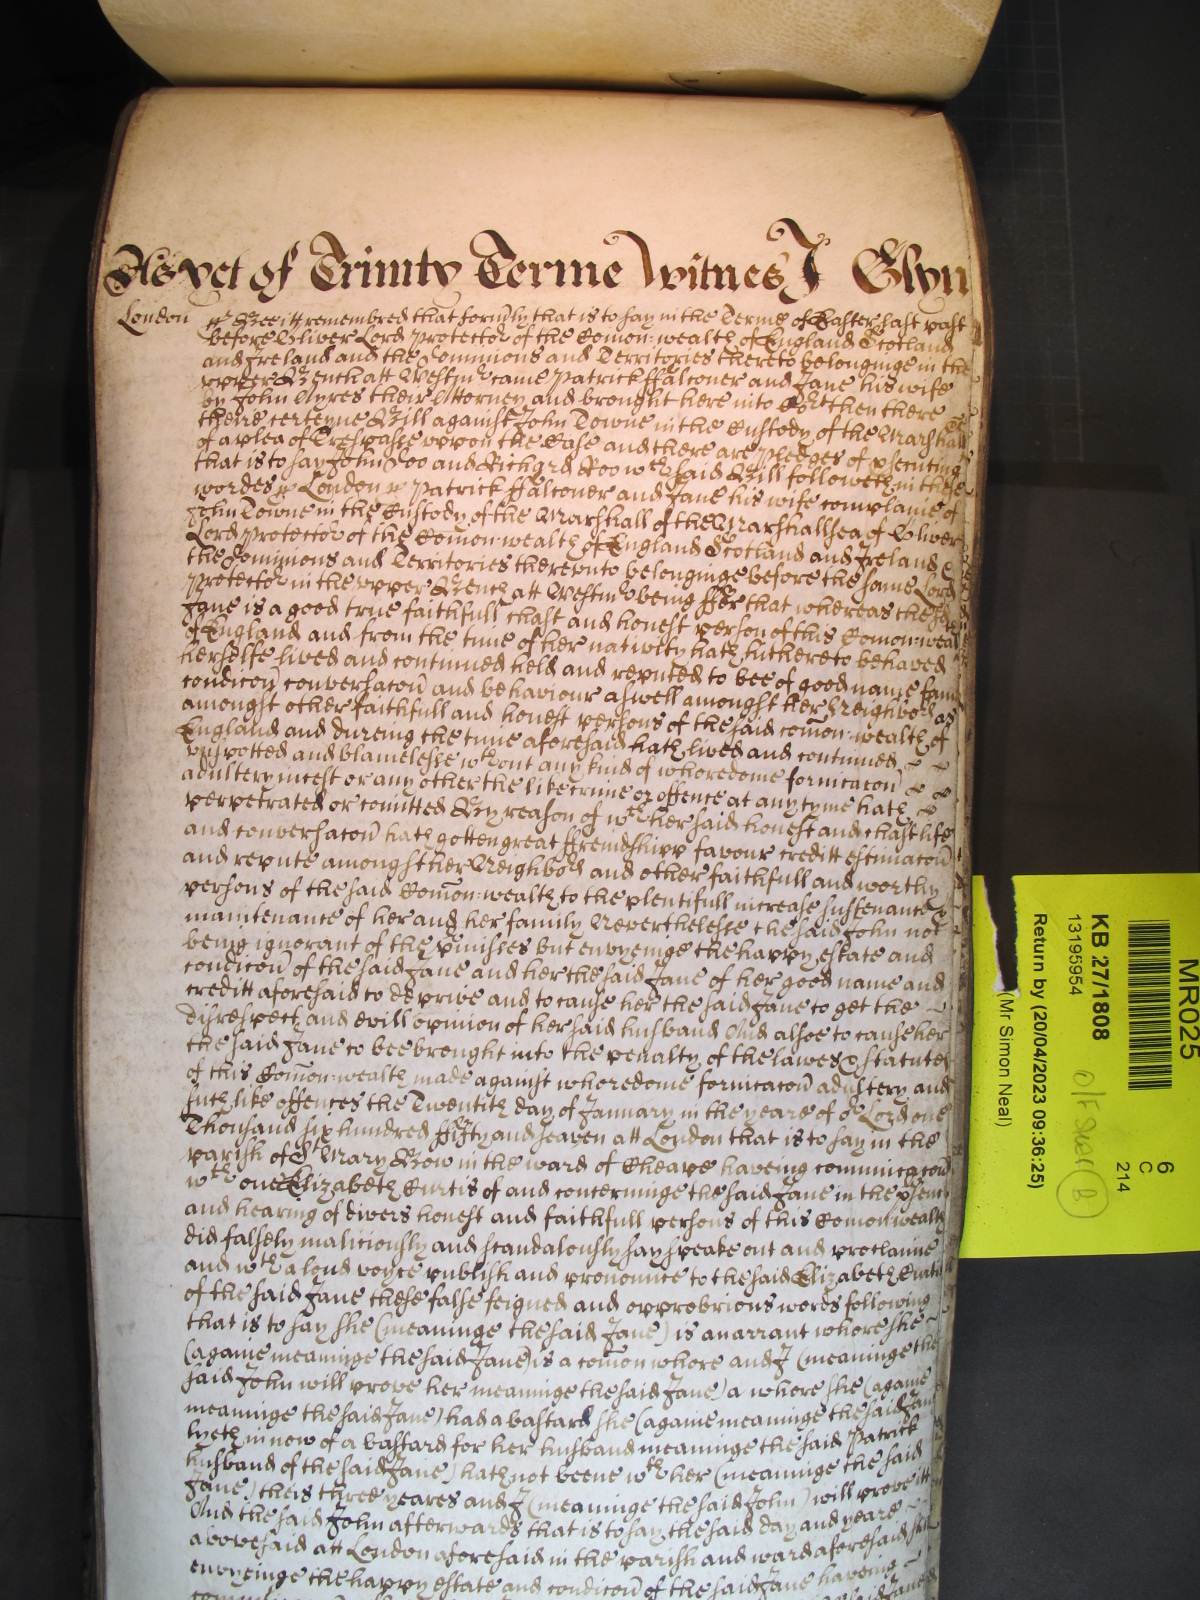 As yet of Trinity Terme Witnes J Glyn
London
Bee itt remembred that formly that is to say in the Terme of Easter last past
before Oliver Lord Protector of the Comon:wealth of England Scotland
and Ireland and the Dominions and Territories thereto belonginge in the
upper Bench att Westmr came Patrick ffalconer and Jane his wife
by John Ayres their Attorney and brought here into Cort then there
theire certeyne Bill against John Towne in the Custody of the Marshall
of a plea of Trespasse uppon the Case and there are pledges of psecuting
that is to say John Doo and Richard Roo wch said Bill followeth in these
wordes London Patrick ffalconer and Jane his wife complaine of
John Towne in the Custody of the Marshall of the Marshallsea of Oliver
Lord Protector of the Comon:wealth of England Scotland and Ireland &
the Dominions and Territories thereunto belonginge before the same Lord
Protector in the upper Bench att Westmr being ffor that whereas the said
Jane is a good true faithfull chast and honest person of this Comon:weal
of England and from the time of her nativity hath hithereto behaved
herselfe lived and continued held and reputed to bee of good name fame
condicon conversacon and behaviour aswell amongst her Neighbors as
amongst other faithfull and honest persons of the said comon:wealth of
England and dureing the time aforesaid hath lived and continued
unspotted and blamelesse wthout any kind of whoredome fornicacon
adultery incest or any other the like crime or offence at any tyme hath
perpetrated or comitted By reason of wch her said honest and chast life
and conversacon hath gotten great ffreindshipp favour creditt estimacon
and repute amongst her Neighbors and other faithfull and worthy
persons of the said Comon:wealth to the plentifull increase sustenance &
maintenance of her and her family Neverthelesse the said John not
being ignorant of the pmisses but envyeinge the happy estate and
condicon of the said Jane and her the said Jane of her good name and
creditt aforesaid to deprive and to cause her the said Jane to get the
disrespect and evill opinion of her said husband And alsoe to cause her
the said Jane to bee brought into the penalty of the lawes & statutes
of this Comon:wealth made against whoredome fornicacon adultery and
such like offences the Twentith day of January in the yeare of or Lord one
Thousand six hundred ffifty and seaven att London that is to say in the
parish of St Mary Bow in the ward of Cheape haveing communicacon
wth one Elizabeth Curtis of and concerninge the said Jane in the psence
and hearing of divers honest and faithfull persons of this Comonwealth
did falsely maliciously and scandalously say speake out and proclaime
and wth a loud voyce publish and pronounce to the said Elizabeth Curtis
of the said Jane these false feigned and opprobrious words following
that is to say she (meaninge the said Jane) is an arrant whore she
(againe meaninge the said Jane) is a comon whore and I (meaninge the
said John will prove her meaninge the said Jane) a whore she (againe
meaninge the said Jane) had a bastard she (againe meaninge the said Jane
lyeth in now of a bastard for her husband meaninge the said Patrick
husband of the said Jane) hath not beene wth her (meaninge the said
Jane) theis three yeares and I (meaninge the said John) will prove itt
And the said John afterwards that is to say the said day and yeare
abovesaid att London aforesaid in the parish and ward aforesaid
envyeinge the happy estate and condicon of the said Jane haveing
MR025
6
C
214
KB 27/1808
13195954
Return by (20/04/2023 09:36:25)
(Mr Simon Neal)